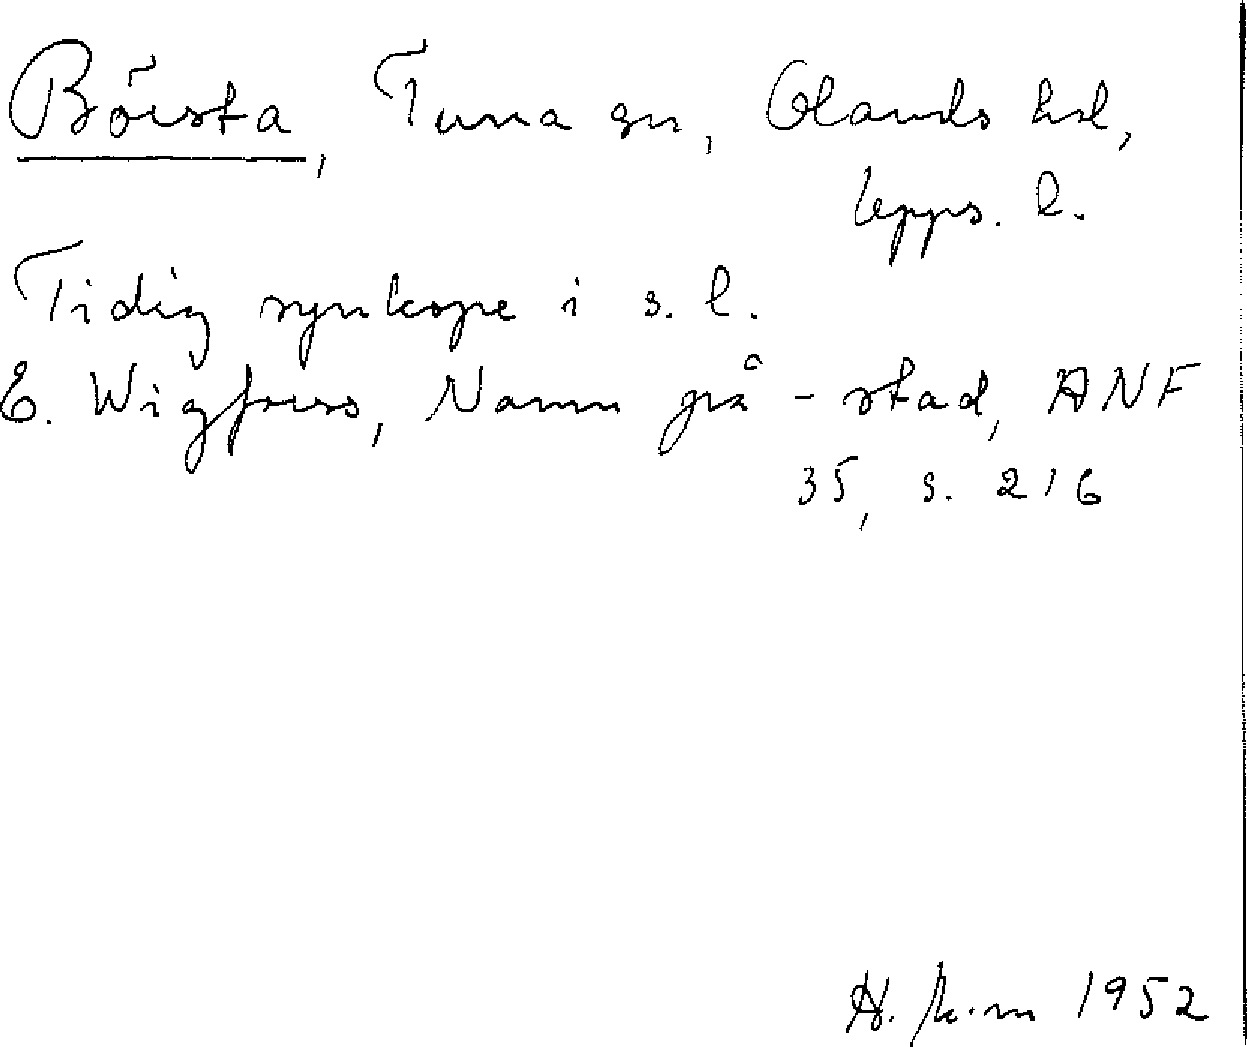 Börsta, Tuna sn, Olands hd,
Upps. l.
Tidig synkope i s. l.
E. Wigforss, Namn på -stad, ANF
35, s. 216
1952